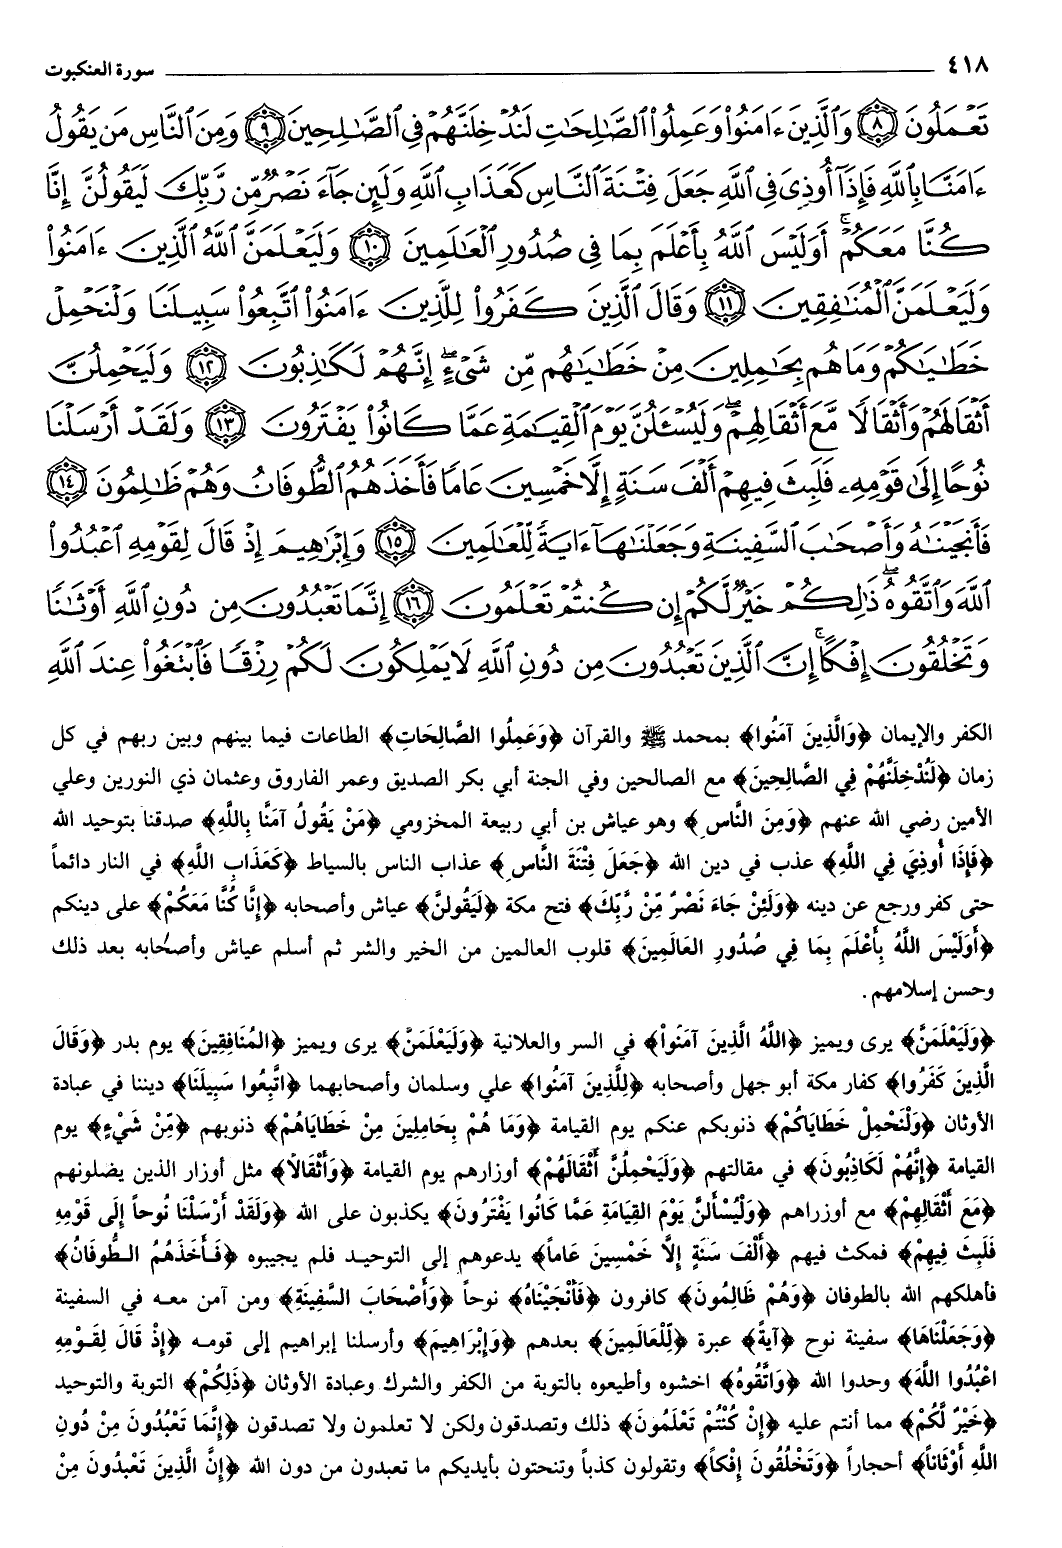 ٤١٨ سورة العنكبوت
تَعْمَلُونَ ٨ وَٱلَّذِينَ ءَامَنُوا۟ وَعَمِلُوا۟ ٱلصَّـٰلِحَـٰتِ لَنُدْخِلَنَّهُمْ فِى ٱلصَّـٰلِحِينَ ٩ وَمِنَ ٱلنَّاسِ مَن يَقُولُ
ءَامَنَّا بِٱللَّهِ فَإِذَآ أُوذِىَ فِى ٱللَّهِ جَعَلَ فِتْنَةَ ٱلنَّاسِ كَعَذَابِ ٱللَّهِ وَلَئِن جَآءَ نَصْرٌ مِّن رَّبِّكَ لَيَقُولُنَّ إِنَّا
كُنَّا مَعَكُمْ ۚ أَوَلَيْسَ ٱللَّهُ بِأَعْلَمَ بِمَا فِى صُدُورِ ٱلْعَـٰلَمِينَ ١٠ وَلَيَعْلَمَنَّ ٱللَّهُ ٱلَّذِينَ ءَامَنُوا۟
وَلَيَعْلَمَنَّ ٱلْمُنَـٰفِقِينَ ١١ وَقَالَ ٱلَّذِينَ كَفَرُوا۟ لِلَّذِينَ ءَامَنُوا۟ ٱتَّبِعُوا۟ سَبِيلَنَا وَلْنَحْمِلْ
خَطَـٰيَـٰكُمْ وَمَا هُم بِحَـٰمِلِينَ مِنْ خَطَـٰيَـٰهُم مِّن شَىْءٍ ۖ إِنَّهُمْ لَكَـٰذِبُونَ ١٢ وَلَيَحْمِلُنَّ
أَثْقَالَهُمْ وَأَثْقَالًا مَّعَ أَثْقَالِهِمْ ۖ وَلَيُسْـَٔلُنَّ يَوْمَ ٱلْقِيَـٰمَةِ عَمَّا كَانُوا۟ يَفْتَرُونَ ١٣ وَلَقَدْ أَرْسَلْنَا
نُوحًا إِلَىٰ قَوْمِهِۦ فَلَبِثَ فِيهِمْ أَلْفَ سَنَةٍ إِلَّا خَمْسِينَ عَامًا فَأَخَذَهُمُ ٱلطُّوفَانُ وَهُمْ ظَـٰلِمُونَ ١٤
فَأَنجَيْنَـٰهُ وَأَصْحَـٰبَ ٱلسَّفِينَةِ وَجَعَلْنَـٰهَآ ءَايَةً لِّلْعَـٰلَمِينَ ١٥ وَإِبْرَٰهِيمَ إِذْ قَالَ لِقَوْمِهِ ٱعْبُدُوا۟
ٱللَّهَ وَٱتَّقُوهُ ۖ ذَٰلِكُمْ خَيْرٌ لَّكُمْ إِن كُنتُمْ تَعْلَمُونَ ١٦ إِنَّمَا تَعْبُدُونَ مِن دُونِ ٱللَّهِ أَوْثَـٰنًا
وَتَخْلُقُونَ إِفْكًا ۚ إِنَّ ٱلَّذِينَ تَعْبُدُونَ مِن دُونِ ٱللَّهِ لَا يَمْلِكُونَ لَكُمْ رِزْقًا فَٱبْتَغُوا۟ عِندَ ٱللَّهِ
الكفر والإيمان ﴿وَالَّذِينَ آمَنُوا﴾ بمحمد ﷺ والقرآن ﴿وَعَمِلُوا الصَّالِحَاتِ﴾ الطاعات فيما بينهم وبين ربهم في كل
زمان ﴿لَنُدْخِلَنَّهُمْ فِي الصَّالِحِينَ﴾ مع الصالحين وفي الجنة أبي بكر الصديق وعمر الفاروق وعثمان ذي النورين وعلي
الأمين رضي الله عنهم ﴿وَمِنَ النَّاسِ﴾ وهو عياش بن أبي ربيعة المخزومي ﴿مَنْ يَقُولُ آمَنَّا بِاللَّهِ﴾ صدقنا بتوحيد الله
﴿فَإِذَا أُوذِيَ فِي اللَّهِ﴾ عذب في دين الله ﴿جَعَلَ فِتْنَةَ النَّاسِ﴾ عذاب الناس بالسياط ﴿كَعَذَابِ اللَّهِ﴾ في النار دائماً
حتى كفر ورجع عن دينه ﴿وَلَئِنْ جَاءَ نَصْرٌ مِّنْ رَّبِّكَ﴾ فتح مكة ﴿لَيَقُولنَّ﴾ عياش وأصحابه ﴿إِنَّا كُنَّا مَعَكُمْ﴾ على دينكم
﴿أَوَلَيْسَ اللَّهُ بِأَعْلَمَ بِمَا فِي صُدُورِ العَالَمِينَ﴾ قلوب العالمين من الخير والشر ثم أسلم عياش وأصحابه بعد ذلك
وحسن إسلامهم.
﴿وَلَيَعْلَمَنَّ﴾ يرى ويميز ﴿اللَّهُ الَّذِينَ آمَنُوا﴾ في السر والعلانية ﴿وَلَيَعْلَمَنَّ﴾ يرى ويميز ﴿المُنَافِقِينَ﴾ يوم بدر ﴿وَقَالَ
الَّذِينَ كَفَرُوا﴾ كفار مكة أبو جهل وأصحابه ﴿لِلَّذِينَ آمَنُوا﴾ علي وسلمان وأصحابهما ﴿اتَّبِعُوا سَبِيلَنَا﴾ ديننا في عبادة
الأوثان ﴿وَلْنَحْمِلْ خَطَايَاكُمْ﴾ ذنوبكم عنكم يوم القيامة ﴿وَمَا هُمْ بِحَامِلِينَ مِنْ خَطَايَاهُمْ﴾ ذنوبهم ﴿مِّنْ شَيْءٍ﴾ يوم
القيامة ﴿إِنَّهُمْ لَكَاذِبُونَ﴾ في مقالتهم ﴿وَلَيَحْمِلُنَّ أَثْقَالَهُمْ﴾ أوزارهم يوم القيامة ﴿وَأَثْقَالاً﴾ مثل أوزار الذين يضلونهم
﴿مَعَ أَثْقَالِهِمْ﴾ مع أوزراهم ﴿وَلَيُسْأَلنَّ يَوْمَ القِيَامَةِ عَمَّا كَانُوا يَفْتَرُونَ﴾ يكذبون على الله ﴿وَلَقَدْ أَرْسَلْنَا نُوحاً إِلَى قَوْمِهِ
فَلَبِثَ فِيهِمْ﴾ فمكث فيهم ﴿أَلْفَ سَنَةٍ إِلَّا خَمْسِينَ عَاماً﴾ يدعوهم إلى التوحيد فلم يجيبوه ﴿فَأَخَذَهُمُ الطُّوفَانُ﴾
فأهلكهم الله بالطوفان ﴿وَهُمْ ظَالِمُونَ﴾ كافرون ﴿فَأَنْجَيْنَاهُ﴾ نوحاً ﴿وَأَصْحَابَ السَّفِينَةِ﴾ ومن آمن معه في السفينة
﴿وَجَعَلْنَاهَا﴾ سفينة نوح ﴿آيَةً﴾ عبرة ﴿لِّلْعَالَمِينَ﴾ بعدهم ﴿وَإِبْرَاهِيمَ﴾ وأرسلنا إبراهيم إلى قومه ﴿إِذْ قَالَ لِقَوْمِهِ
اعْبُدُوا اللَّهَ﴾ وحدوا الله ﴿وَاتَّقُوهُ﴾ اخشوه وأطيعوه بالتوبة من الكفر والشرك وعبادة الأوثان ﴿ذَلِكُمْ﴾ التوبة والتوحيد
﴿خَيْرٌ لَّكُمْ﴾ مما أنتم عليه ﴿إِنْ كُنْتُمْ تَعْلَمُونَ﴾ ذلك وتصدقون ولكن لا تعلمون ولا تصدقون ﴿إِنَّمَا تَعْبُدُونَ مِنْ دُونِ
اللَّهِ أَوْثَاناً﴾ أحجاراً ﴿وَتَخْلُقُونَ إِفْكاً﴾ وتقولون كذباً وتنحتون بأيديكم ما تعبدون من دون الله ﴿إِنَّ الَّذِينَ تَعْبُدُونَ مِنْ